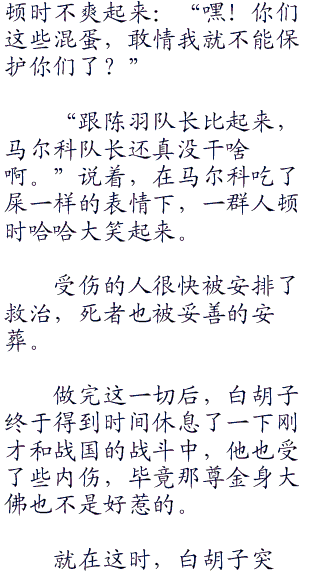 顿时不爽起来：“嘿！你们
这些混蛋，敢情我就不能保
护你们了？”
“跟陈羽队长比起来，
马尔科队长还真没干啥
啊。”说着，在马尔科吃了
屎一样的表情下，一群人顿
时哈哈大笑起来。
受伤的人很快被安排了
救治，死者也被妥善的安
葬。
做完这一切后，白胡子
终于得到时间休息了一下刚
才和战国的战斗中，他也受
了些内伤，毕竟那尊金身大
佛也不是好惹的。
就在这时，白胡子突